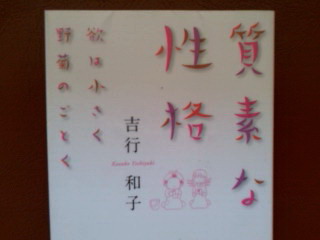 質素な
性格
欲は小さく
野菊のごとく
吉行和子
Kazuko Yoshiyuki